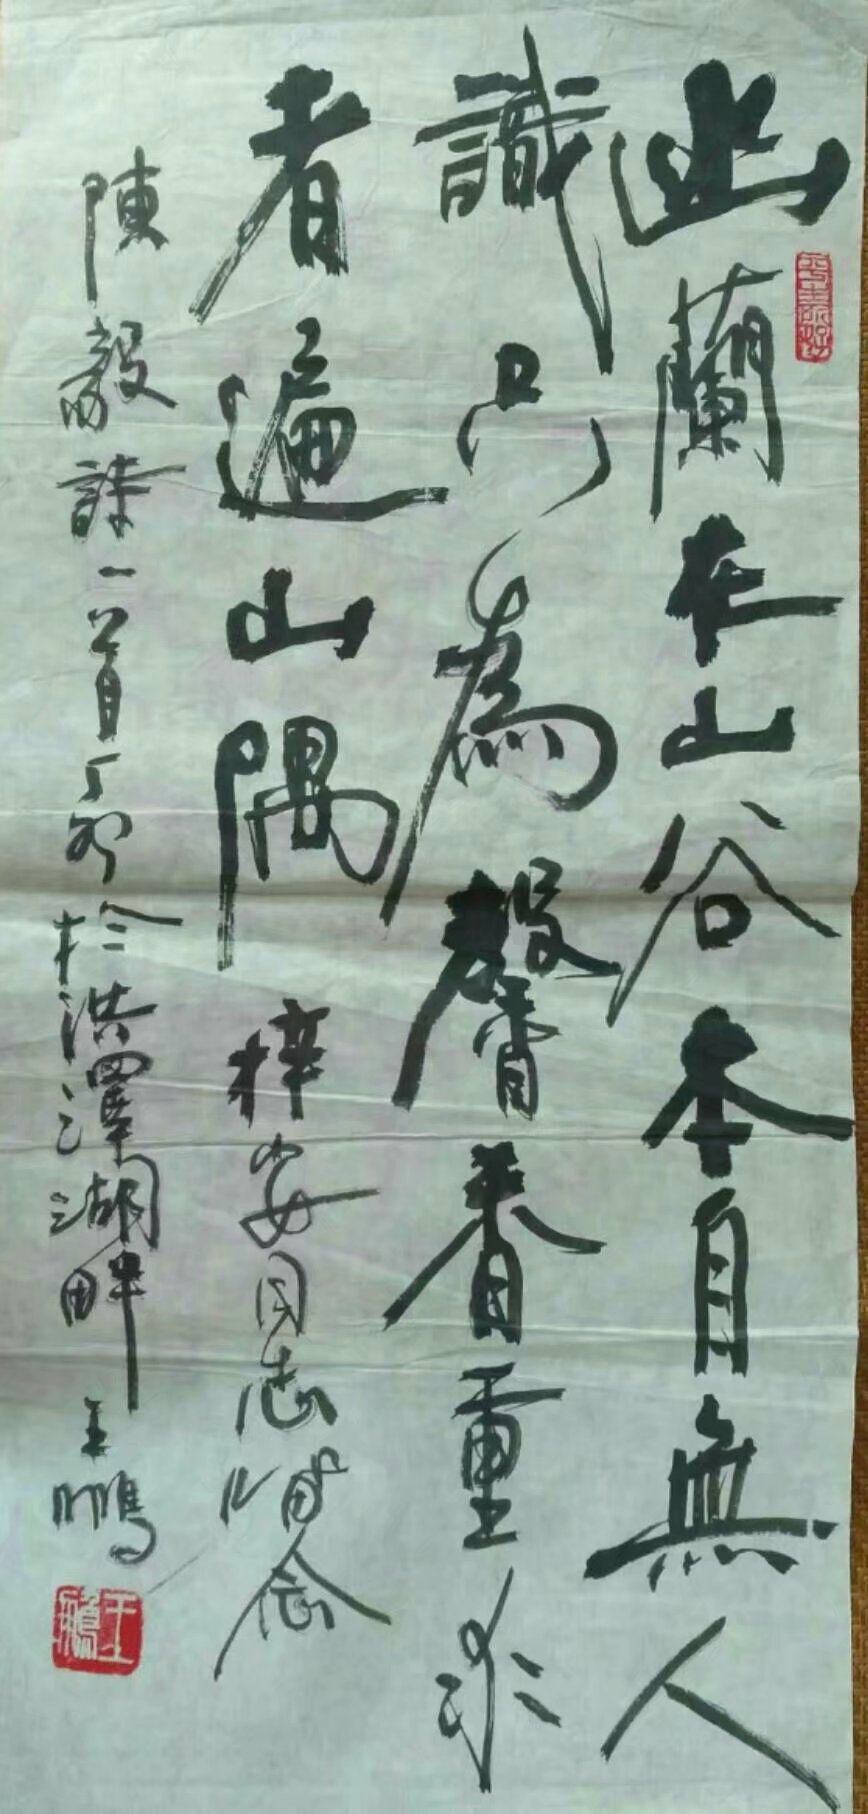 幽蘭在山谷本自無人
識只為馨香重求
者遍山隅
梓安同志留念
陳毅詩一首丁卯於洪澤湖畔王鵬
王鵬